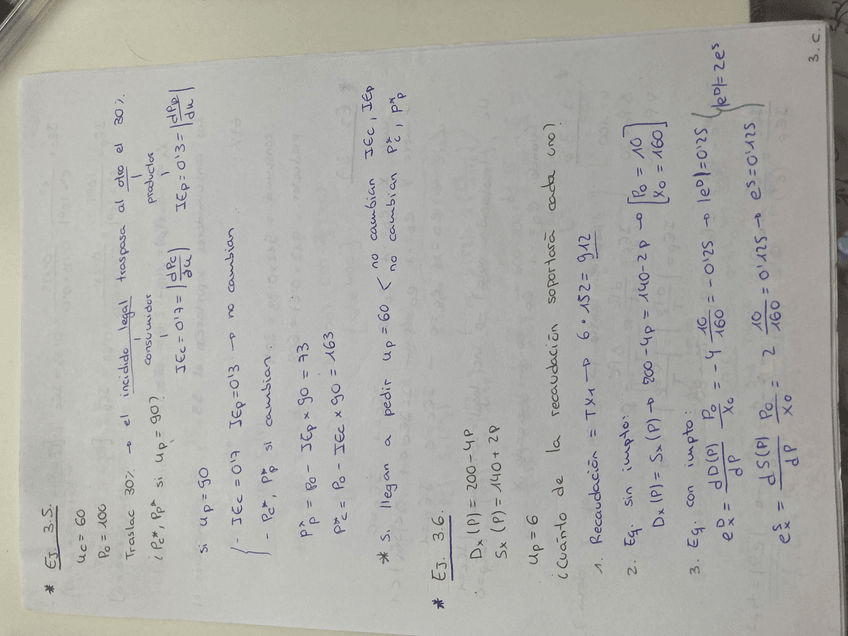 * EJ. 3.5.
uc = 60
Po = 100
Traslac 30% → el incidido legal traspasa al otro el 30%.
consumidor productor
¿Pc*, Pp* si up = 90? IEc = 0'7 = |dPc/du| IEp = 0'3 = |dPp/du|
si up = 90
- IEc = 0'7 IEp = 0'3 → no cambian
- Pc*, Pp* si cambian.
P*p = Po - IEp × 90 = 73
P*c = Po - IEc × 90 = 163
* Si llegan a pedir up = 60 < no cambian IEc, IEp
no cambian P*c, P*p
* EJ. 3.6.
Dx (P) = 200 - 4P
Sx (P) = 140 + 2P
up = 6
¿Cuánto de la recaudación soportará cada uno?
1. Recaudación = T×1 → 6 · 152 = 912
2. Eq. sin impto:
Dx (P) = Sx (P) → 200 - 4P = 140 - 2P → [Po = 10
[Xo = 160]
3. Eq. con impto:
eDx = dD(P)/dP Po/Xo = -4 10/160 = -0'25 → |eD| = 0'25
|eD| = 2eS
eSx = dS(P)/dP Po/Xo = 2 10/160 = 0'125 → eS = 0'125
3. C.